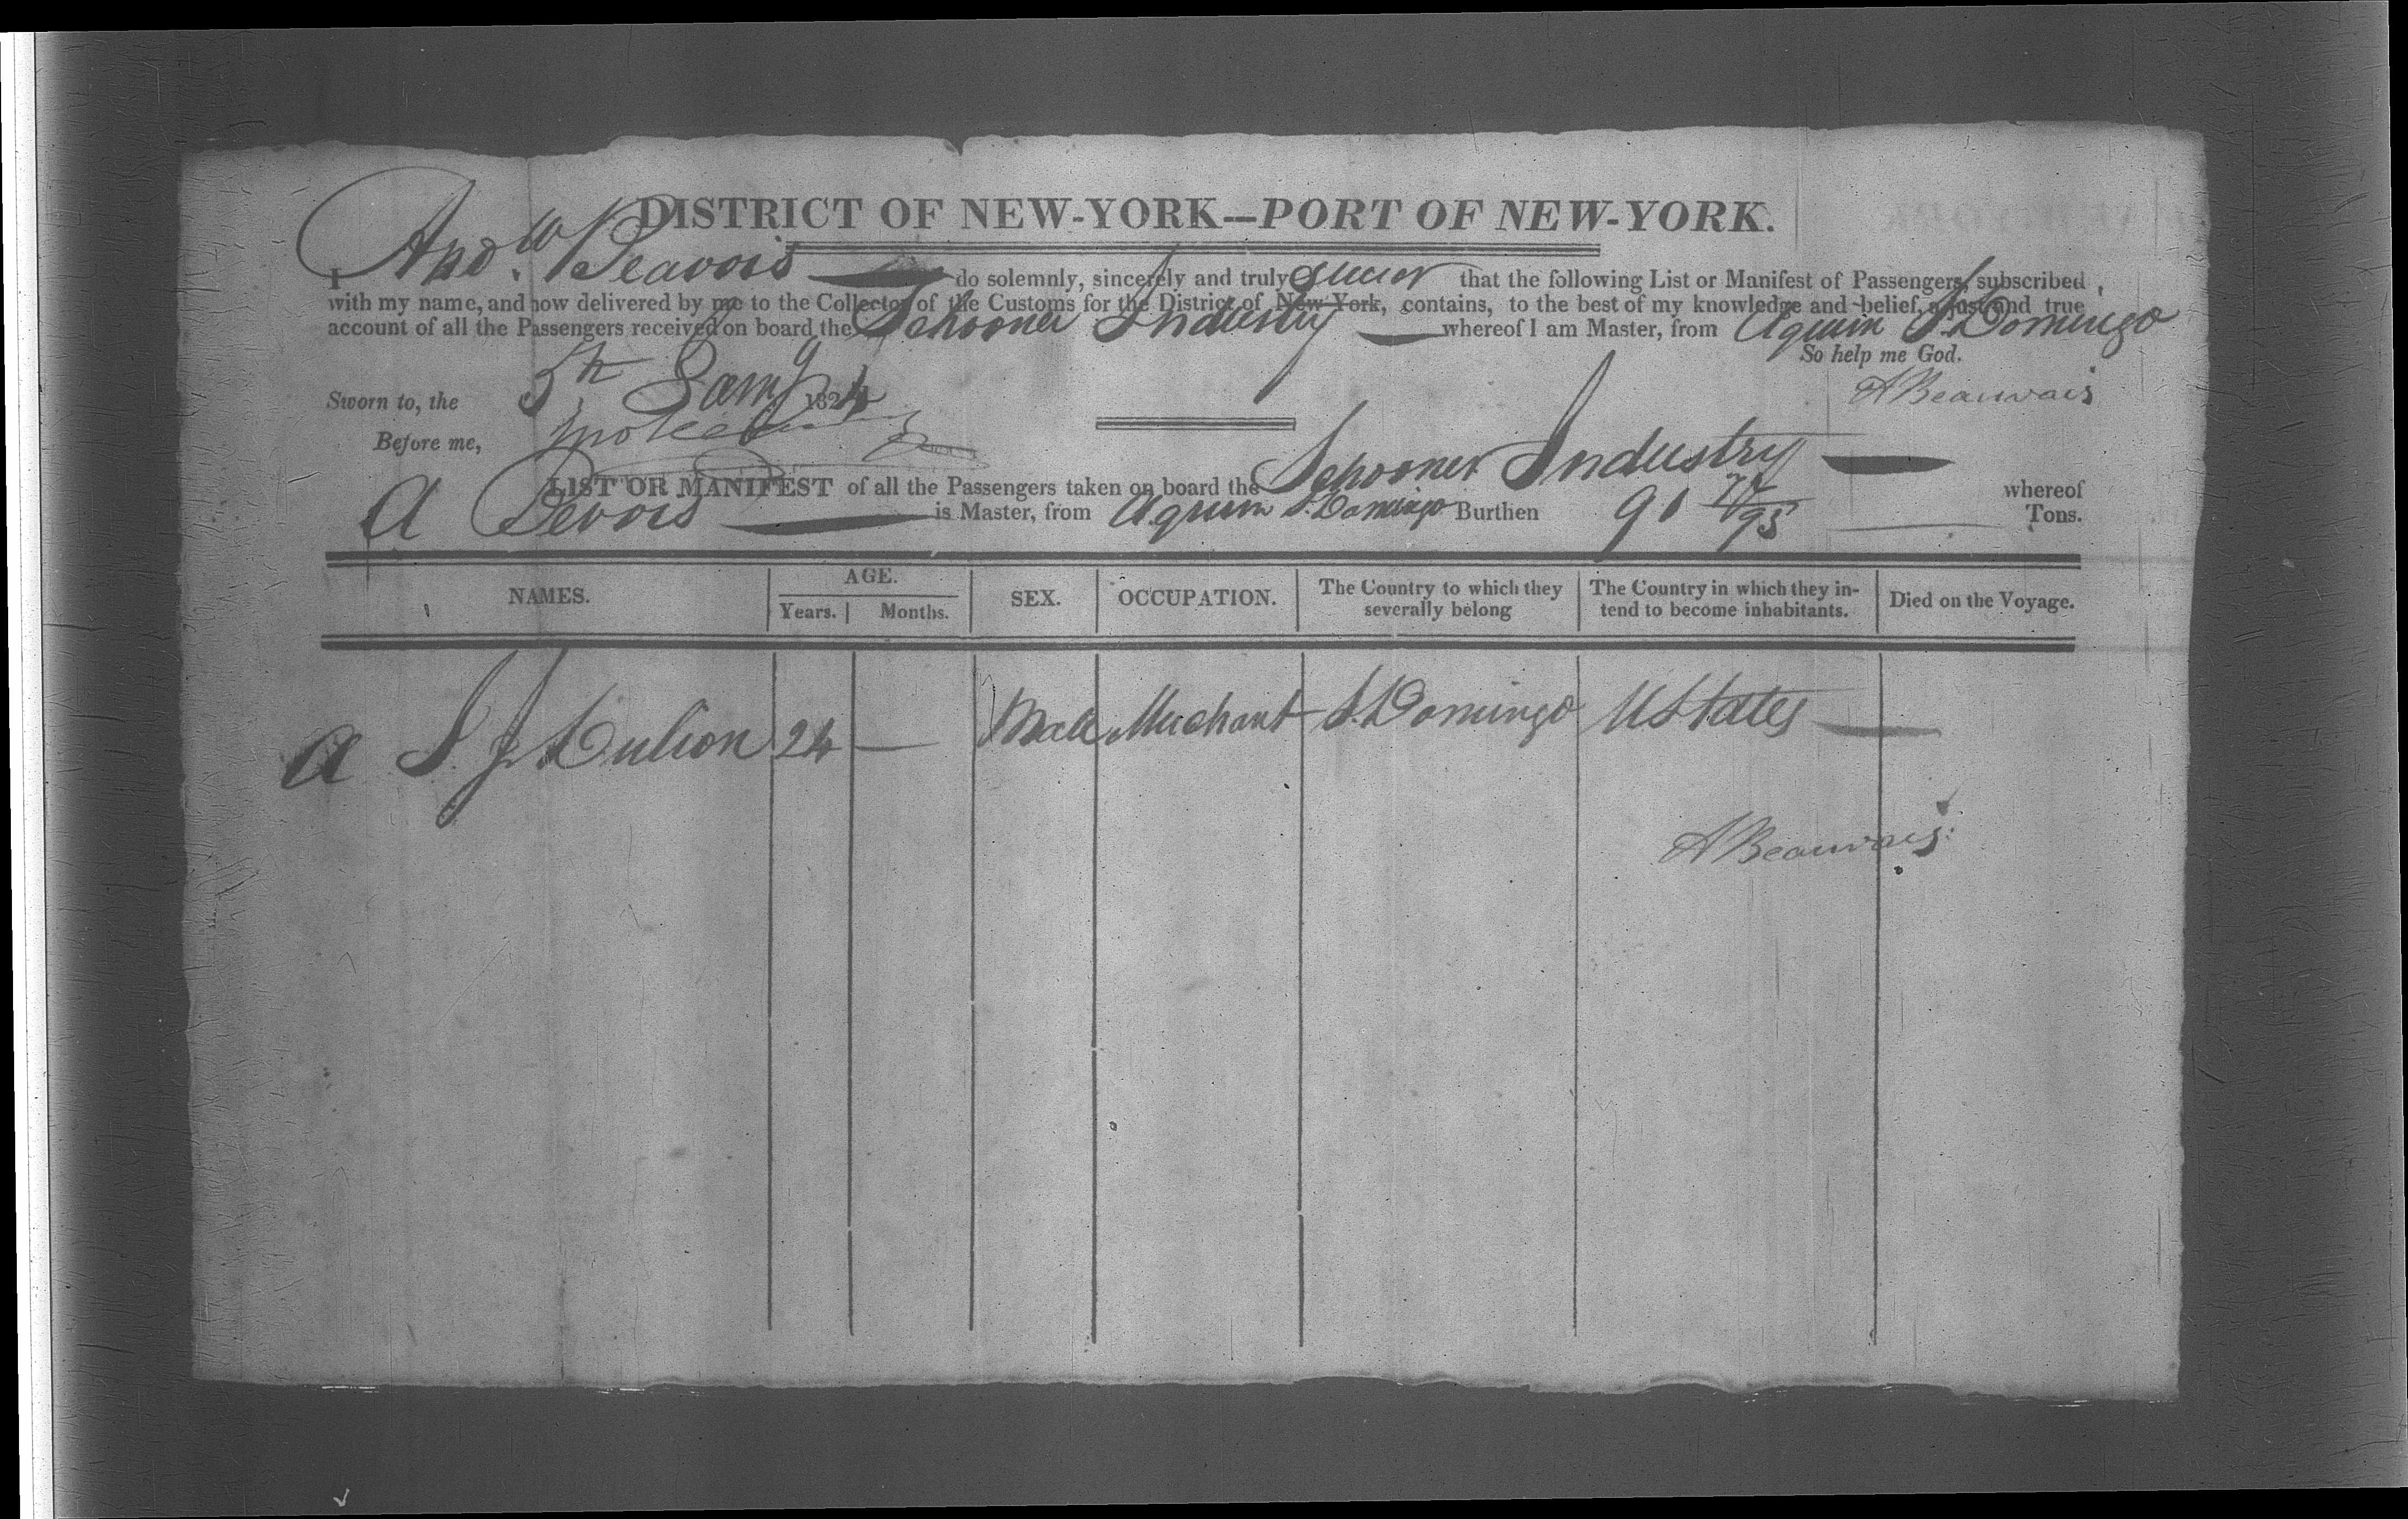 DISTRICT OF NEW-YORK—PORT OF NEW-YORK.
I And.w Beavois do solemnly, sincerely and truly swear that the following List or Manifest of Passengers, subscribed
with my name, and now delivered by me to the Collector of the Customs for the District of New-York, contains, to the best of my knowledge and belief, a just and true
account of all the Passengers received on board the Schooner Industry whereof I am Master, from Aquin St. Domingo
So help me God.
Sworn to, the 5th Jany 1824 A Beauvais
Before me,
LIST OR MANIFEST of all the Passengers taken on board the Schooner Industry whereof
A Bevois is Master, from Aquin St. Domingo Burthen 91 /95 Tons.
NAMES. AGE. Years. Months. SEX. OCCUPATION. The Country to which they severally belong The Country in which they intend to become inhabitants. Died on the Voyage.
24 — Male Merchant St. Domingo U States —
A Beauvais